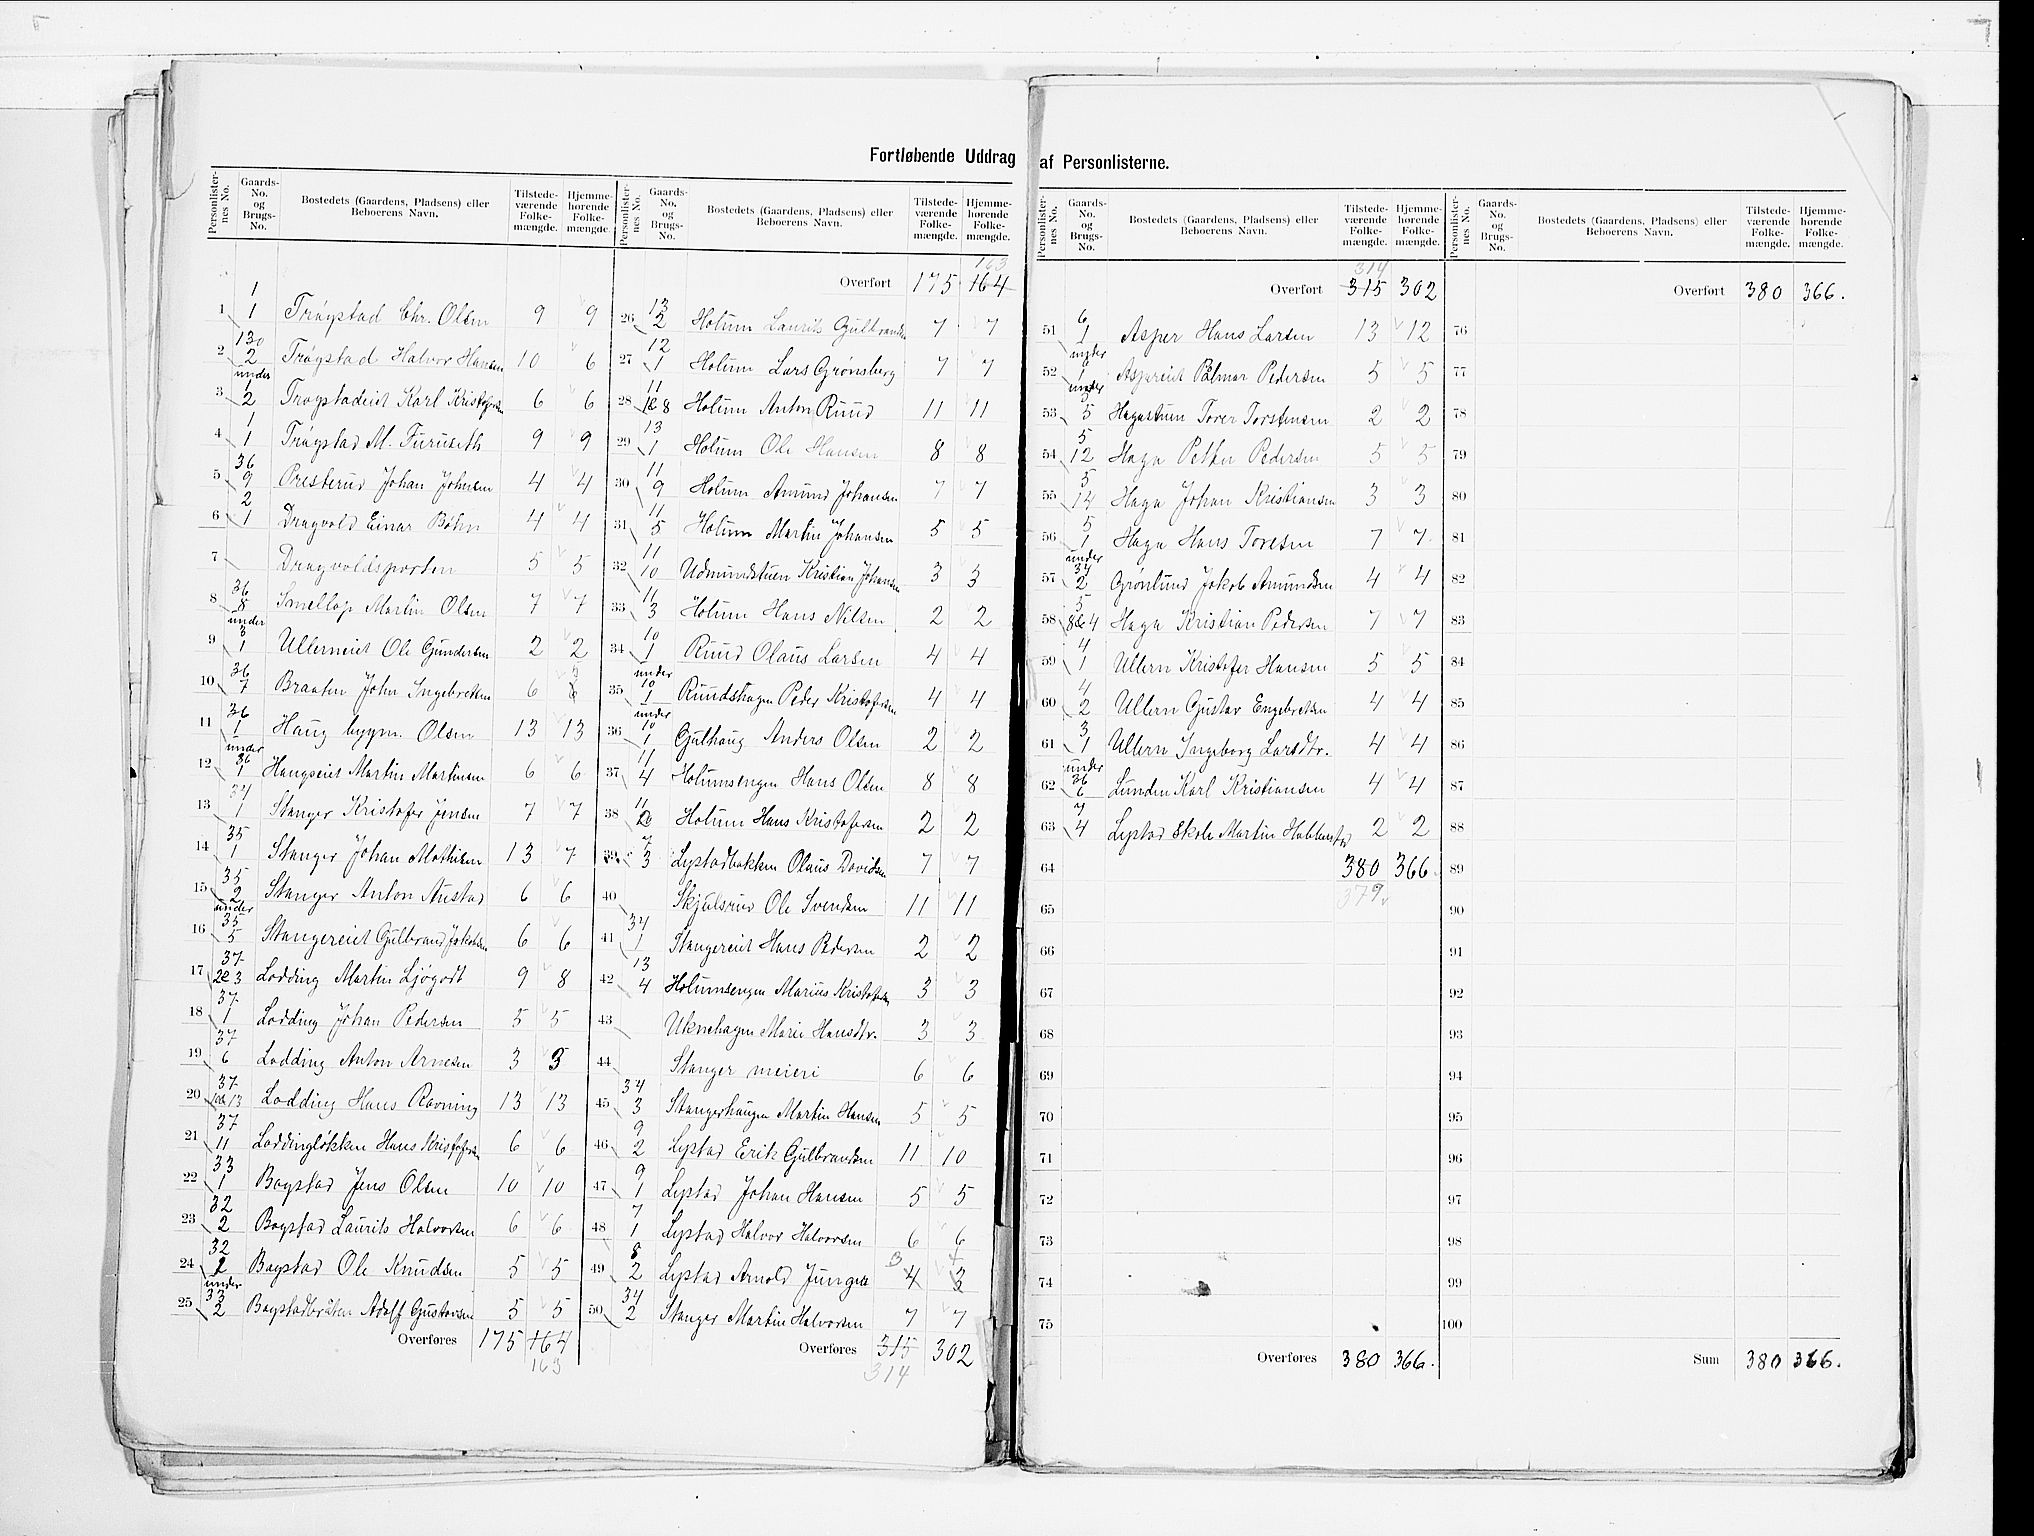 Fortløbende Uddrag af Personlisterne.
Personlisternes No. Gaards-No. og Brugs-No. Bostedets (Gaardens, Pladsens) eller Beboerens Navn. Tilstedeværende Folkemængde. Hjemmehørende Folkemængde.
1 1/1 Trøgstad Chr. Olsen 9 9
2 130/2 Trøgstad Halvor Hansen 10 6
3 under 1/2 Trøgstadeiet Karl Kristofersen 6 6
4 1/1 Trøgstad M. Furuseth 9 9
5 36/9 Presterud Johan Johnsen 4 4
6 2/1 Dragvold Einar Bøhn 4 4
7 Dragvoldsporten 5 5
8 36/8 Smellop Martin Olsen 7 7
9 under 3/1 Ullerneiet Ole Gundersen 2 2
10 36/7 Braaten John Ingebretsen 6 6 5
11 36/1 Haug bygm. Olsen 13 13
12 under 36/1 Haugseiet Martin Martinsen 6 6
13 34/1 Stanger Kristofer Jensen 7 7
14 35/1 Stanger Johan Mathisen 13 7
15 35/2 Stanger Anton Austad 6 6
16 under 35/5 Stangereiet Gulbrand Jakobsen 6 6
17 37/2 & 3 Lodding Martin Ljøgodt 9 8
18 37/1 Lodding Johan Pedersen 5 5
19 37/6 Lodding Anton Arnesen 3 3
20 37/10 & 13 Lodding Hans Ravning 13 13
21 37/11 Loddingløkken Hans Kristofersen 6 6
22 33/1 Bogstad Jens Olsen 10 10
23 32/2 Bogstad Laurits Halvorsen 6 6
24 32/2 Bogstad Ole Knudsen 5 5
25 under 33/2 Bogstadbråten Adolf Gustavsen 5 5
Overføres 175 164
163
Personlisternes No. Gaards-No. og Brugs-No. Bostedets (Gaardens, Pladsens) eller Beboerens Navn. Tilstedeværende Folkemængde. Hjemmehørende Folkemængde.
163
Overført 175 164
26 13/2 Holum Laurits Gulbrandsen 7 7
27 12/1 Holum Lars Grønsberg 7 7
28 11/1 & 8 Holum Anton Ruud 11 11
29 13/1 Holum Ole Hansen 8 8
30 11/9 Holum Amund Johansen 7 7
31 11/5 Holum Martin Johansen 5 5
32 11/10 Udmundstuen Kristian Johansen 3 3
33 11/3 Holum Hans Nilsen 2 2
34 10/1 Ruud Olaus Larsen 4 4
35 under 10/1 Ruudshagen Peder Kristofersen 4 4
36 under 10/1 Gulhaug Anders Olsen 2 2
37 11/4 Holumsengen Hans Olsen 8 8
38 11 Holum Hans Kristofersen 2 2
39 7/3 Lystadbakken Olaus Davidsen 7 7
40 Skjulsrud Ole Svendsen 11 11
41 34/1 Stangereiet Hans Pedersen 2 2
42 13/4 Holumsengen Marius Kristofersen 3 3
43 Uknehagen Marie Hansdtr. 3 3
44 Stanger meieri 6 6
45 34/3 Stangerhaugen Martin Hansen 5 5
46 9/2 Lystad Erik Gulbrandsen 11 10
47 9/1 Lystad Johan Hansen 5 5
48 7/1 Lystad Halvor Halvorsen 6 6
49 8/2 Lystad Arnold Junge 3 4 3
50 34/2 Stanger Martin Halvorsen 7 7
Overføres 315 302
314
Personlisternes No. Gaards-No. og Brugs-No. Bostedets (Gaardens, Pladsens) eller Beboerens Navn. Tilstedeværende Folkemængde. Hjemmehørende Folkemængde.
314
Overført 315 302
51 6/1 Asper Hans Larsen 13 12
52 under 6/1 Aspereiet Palmar Pedersen 5 5
53 under 5 Hagastuen Torer Torstensen 2 2
54 5/12 Haga Petter Pedersen 5 5
55 5/14 Haga Johan Kristiansen 3 3
56 5/1 Haga Hans Toresen 7 7
57 under 34/2 Grønlund Jakob Amundsen 4 4
58 5/8 & 4 Haga Kristian Pedersen 7 7
59 4/1 Ullern Kristofer Hansen 5 5
60 4/2 Ullern Gustav Engebretsen 4 4
61 3/1 Ullern Ingeborg Larsdtr. 4 4
62 under 36/6 Lunden Karl Kristiansen 4 4
63 7/4 Lystad Skole Martin 2 2
64 380 366
65 379
66
67
68
69
70
71
72
73
74
75
Overføres 380 366.
Personlisternes No. Gaards-No. og Brugs-No. Bostedets (Gaardens, Pladsens) eller Beboerens Navn. Tilstedeværende Folkemængde. Hjemmehørende Folkemængde.
Overført 380 366.
76
77
78
79
80
81
82
83
84
85
86
87
88
89
90
91
92
93
94
95
96
97
98
99
100
Sum 380 366.